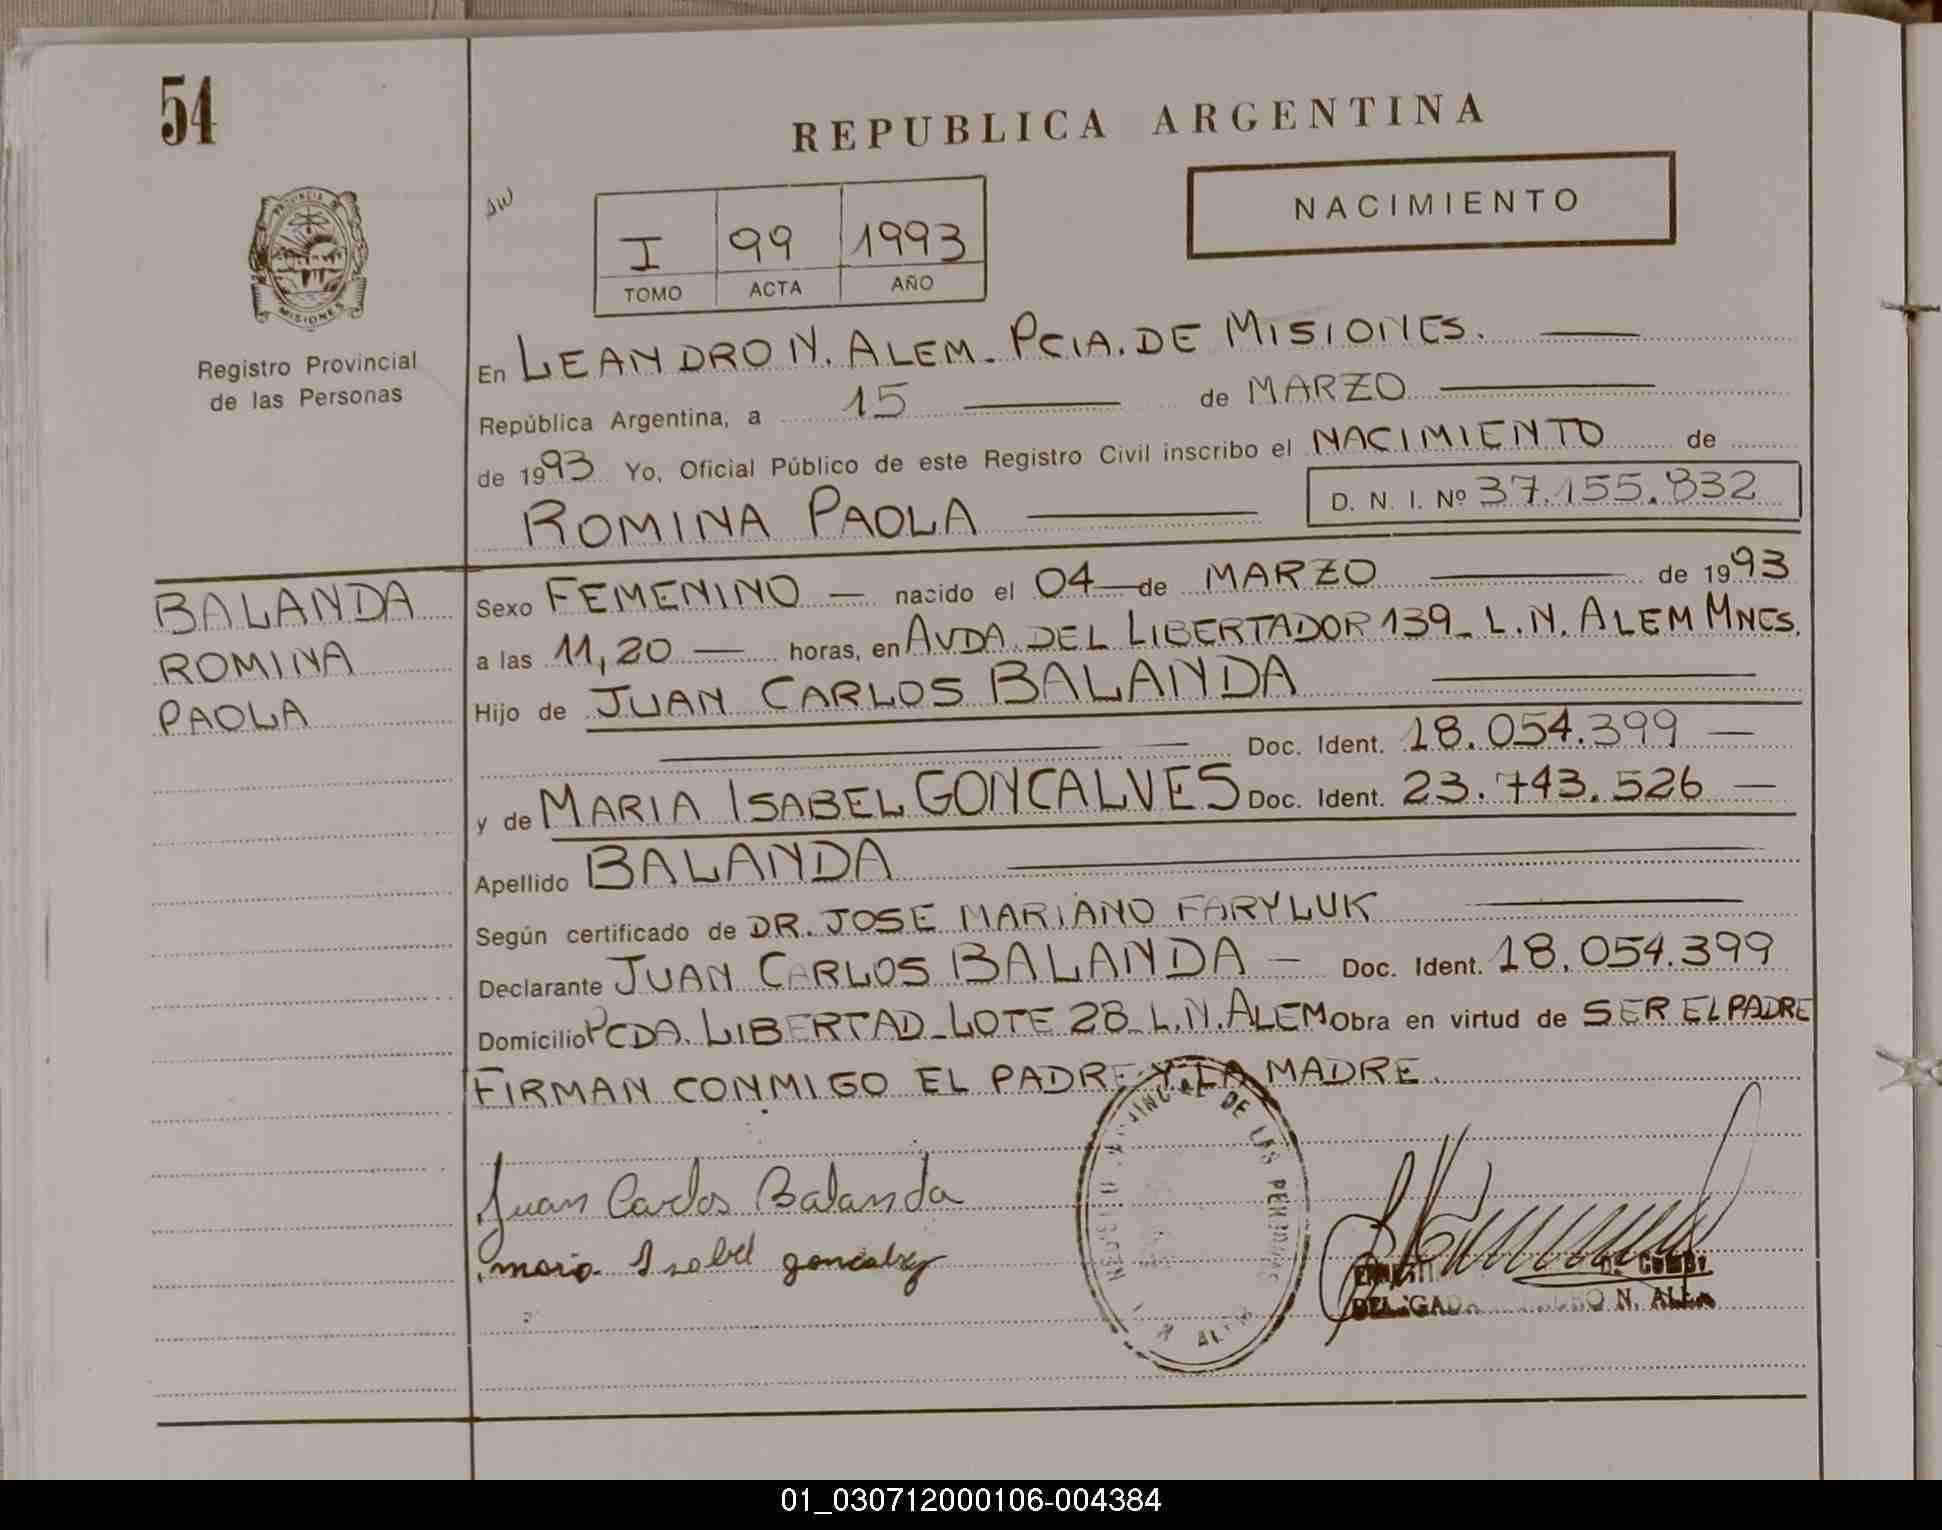 54
REPUBLICA ARGENTINA
NACIMIENTO
I 99 1993
TOMO ACTA AÑO
PROVINCIA DE
MISIONES
Registro Provincial
de las Personas
En LEANDRO N. ALEM - PCIA. DE MISIONES.
República Argentina, a 15 de MARZO
de 1993 Yo, Oficial Público de este Registro Civil inscribo el NACIMIENTO de
ROMINA PAOLA D. N. I. Nº 37.155.832
BALANDA
ROMINA
PAOLA
Sexo FEMENINO — nacido el 04 — de MARZO de 1993
a las 11,20 — horas, en AVDA. DEL LIBERTADOR 139 - L.N. ALEM MNES.
Hijo de JUAN CARLOS BALANDA
Doc. Ident. 18.054.399 —
y de MARIA ISABEL GONCALVES Doc. Ident. 23.743.526 —
Apellido BALANDA
Según certificado de DR. JOSE MARIANO FARYLUK
Declarante JUAN CARLOS BALANDA — Doc. Ident. 18.054.399
Domicilio PCDA. LIBERTAD - LOTE 28 - L.N. ALEM Obra en virtud de SER EL PADRE
FIRMAN CONMIGO EL PADRE Y LA MADRE.
Juan Carlos Balanda
maria Isabel goncalvez
DE LAS
N. ALEM
01_030712000106-004384